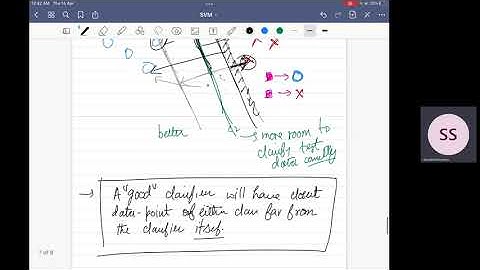 SVM
better
d2 → more room to
classify test
data correctly
→ A "good" classifier will have closest
data-point of either class far from
the classifier itself.
SS
7 of 9